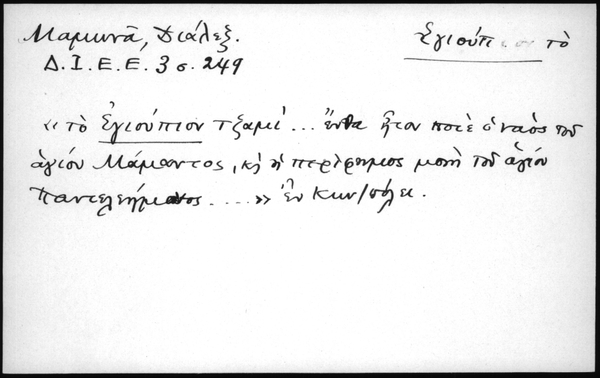 Μαμωνᾶ, Διάλεξ.
Ἐγιούπιον τὸ
Δ.Ι.Ε.Ε. 3 σ. 249
«τὸ Ἐγιούπιον τζαμί... ἔνθα ἦτον ποτὲ ὁ ναὸς τοῦ
ἁγίου Μάμαντος, κὴ ἡ περίφημος μονὴ τοῦ ἁγίου
Παντελεήμονος ....» ἐν Κων/πόλει.